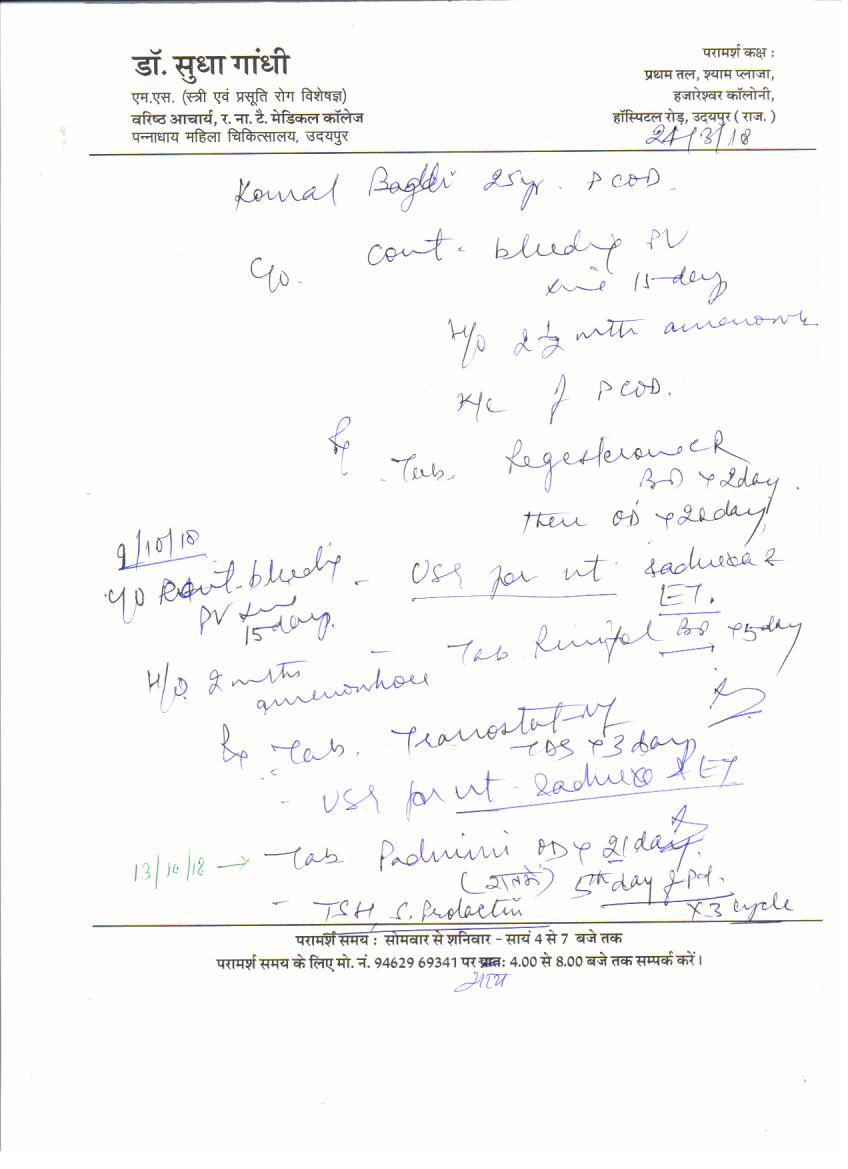 डॉ. सुधा गांधी
एम.एस. (स्त्री एवं प्रसूति रोग विशेषज्ञ)
वरिष्ठ आचार्य, र. ना. टै. मेडिकल कॉलेज
पन्नाधाय महिला चिकित्सालय, उदयपुर
परामर्श कक्ष :
प्रथम तल, श्याम प्लाजा,
हजारेश्वर कॉलोनी,
हॉस्पिटल रोड़, उदयपुर ( राज. )
24/3/18
Komal 25yr. PCOD.
C/o. Cont - bleeding PV
since 15-day
H/o 2 1/2 mth
K/c of PCOD.
Rx
Tab. Regesterone CR
BD x 2day
then OD x day
- USG for ut. &
ET.
- Tab. BD x 5day
9/10/18
C/o cont-bleeding
PV since
15day.
H/o 2 mths
amenorrhoea
Rx Tab. Tranostat-MF
TDS x 3 days
- USG for ut - & ET
13/10/18 → Tab Padmini OD x 21day.
5th day of Pd.
x 3 cycle
- TSH, S. Prolactin
परामर्श समय : सोमवार से शनिवार - सायं 4 से 7 बजे तक
परामर्श समय के लिए मो. नं. 94629 69341 पर प्रातः 4.00 से 8.00 बजे तक सम्पर्क करें।